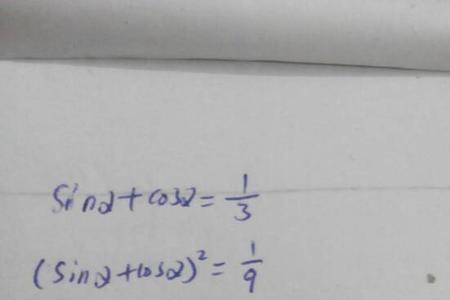 sinα+cosα=1/3
(sinα+cosα)²=1/9